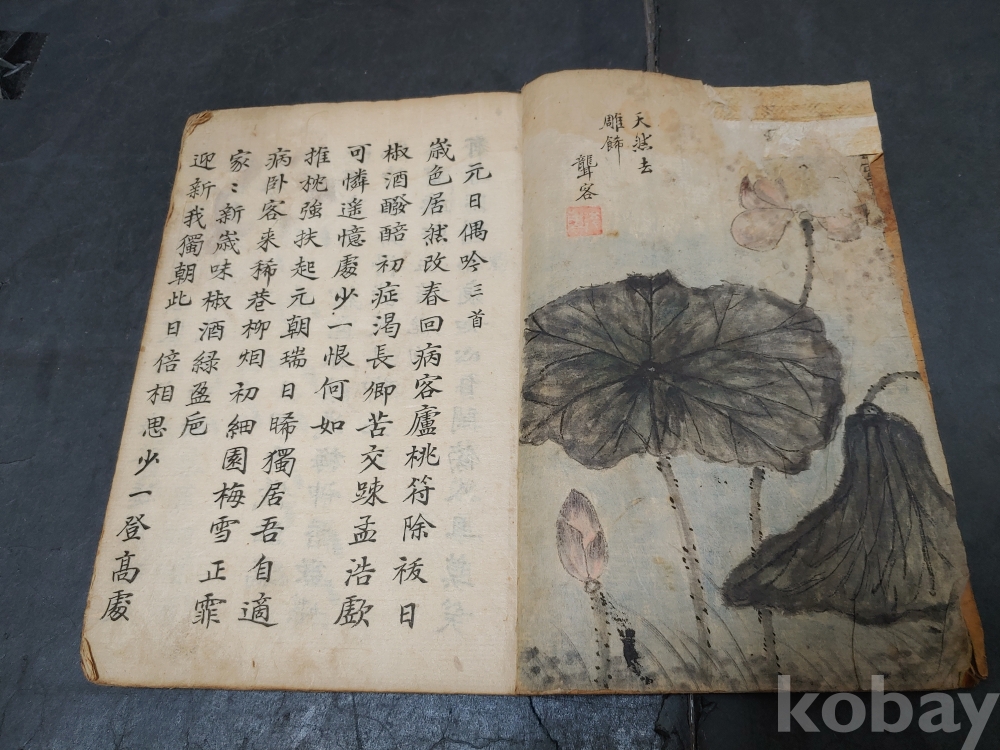 天然去
雕飾
聾客
元日偶吟三首
歳色居然改春回病客廬桃符除祓日
椒酒醱醅初症渴長卿苦交踈孟浩歔
可憐遥憶處少一恨何如
推枕強扶起元朝瑞日晞獨居吾自適
病卧客来稀巷柳烟初細園梅雪正霏
家〻新歳味椒酒緑盈巵
迎新我獨朝此日倍相思少一登髙處
kobay